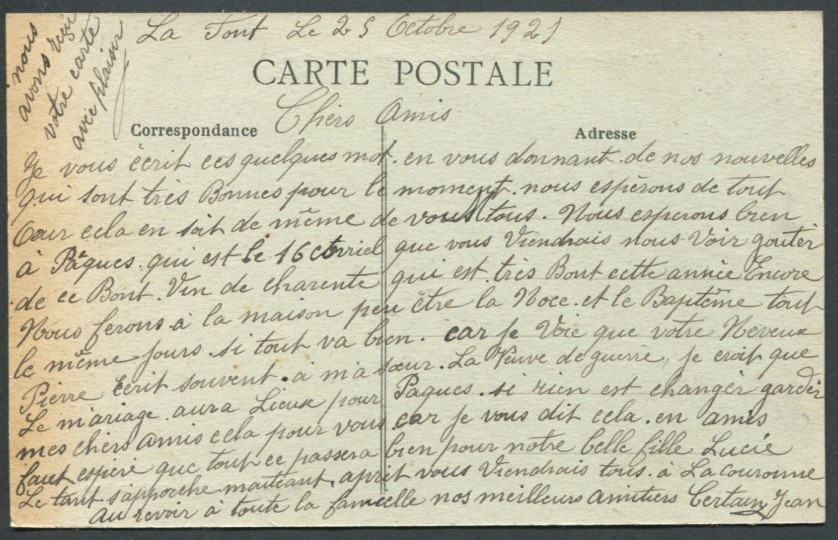 La Font Le 25 Octobre 1921
nous
avons reçu
votre carte
avec plaisir
CARTE POSTALE
Chers Amis
Correspondance
Adresse
Je vous écrit ces quelques mot. en vous donnant. de nos nouvelles
qui sont très Bonnes pour le moment. nous espérons de tout
Cœur cela en soit de même de vous tous. Nous esperons bien
à Pâques. qui est le 16 que vous Viendrais nous Voir gouter
de ce Bont. Vin de charente qui est. très Bont cette année Encore
Nous ferons. à la maison peu être la Noce. et le Baptême tout
le même jours. si tout va bien. car je Voie que votre Neveux
Pierre Ecrit souvent. a ma sœur. La Veuve de guerre, je croit que
Le mariage aura Lieux pour Paques. si rien est changer garder
mes chers amis cela pour vous car je vous dit cela. en amis
faut espiré que tout ce passera bien pour notre belle fille Lucie
Le tant s'approche maiteant, apret vous Viendrais tous. à La couronne
au revoir à toute la famielle nos meilleurs amitiers Certain Jean